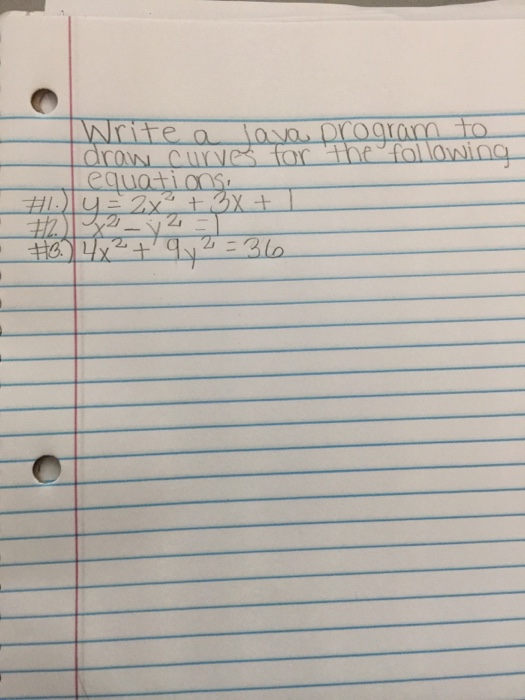 Write a java program to
draw curves for the following
equations.
#1.) y = 2x² + 3x + 1
#2.) x² - y² = 1
#3.) 4x² + 9y² = 36